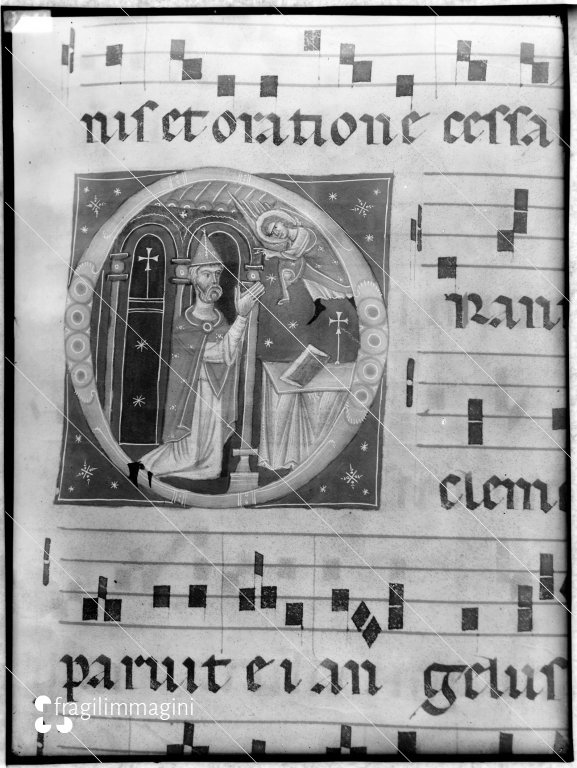 nis et oratione cessa
rani
clem
paruit ei an gelus
fragilimmagini